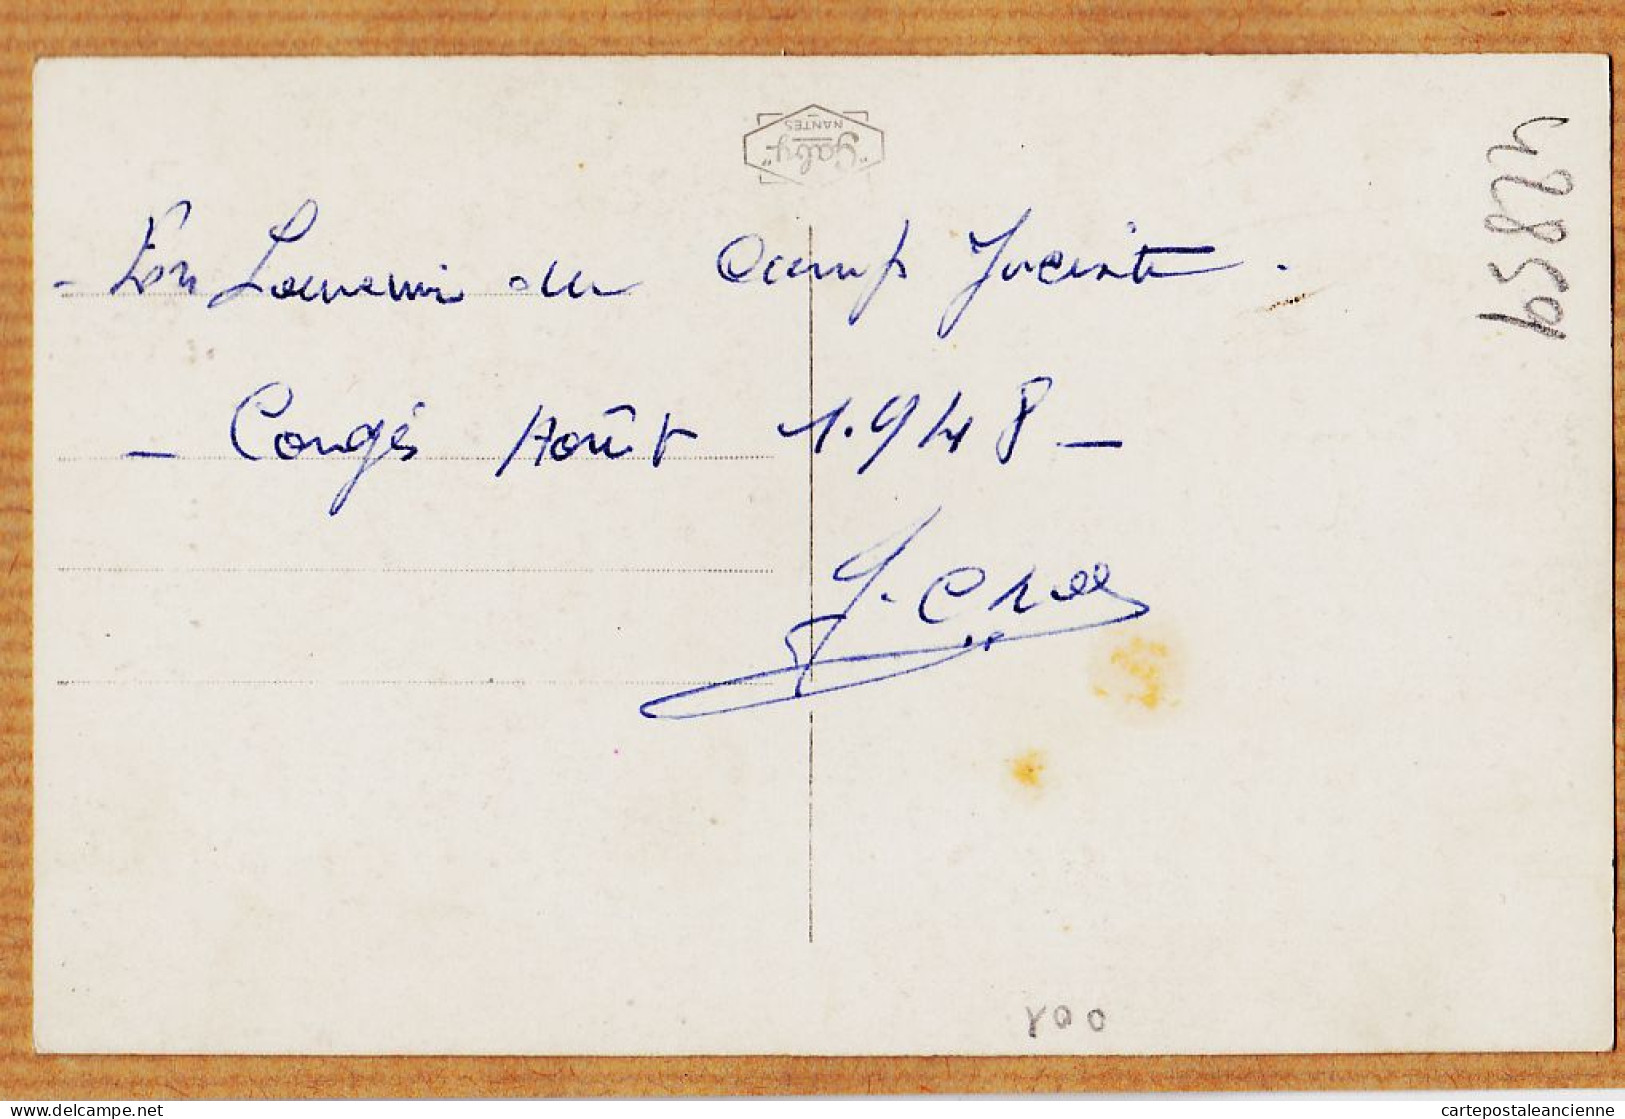 "Gaby"
NANTES
- En Souvenir du Camp Jucinte.
- Congés Août 1.948 -
J. Cros
42859
100
delcampe.net
cartepostaleancienne